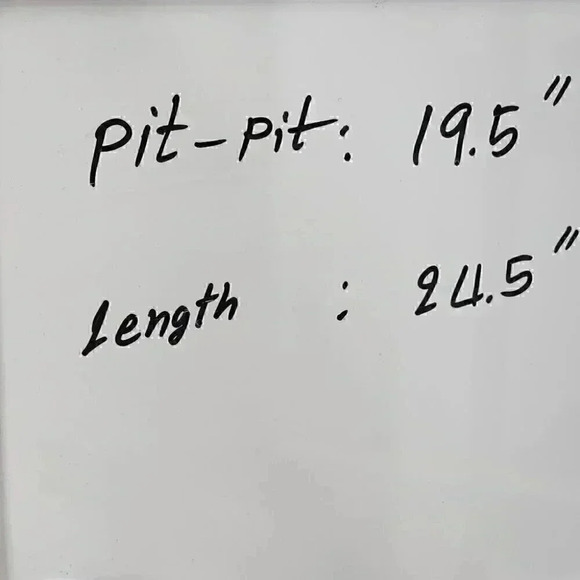 Pit-Pit: 19.5"
Length : 24.5"